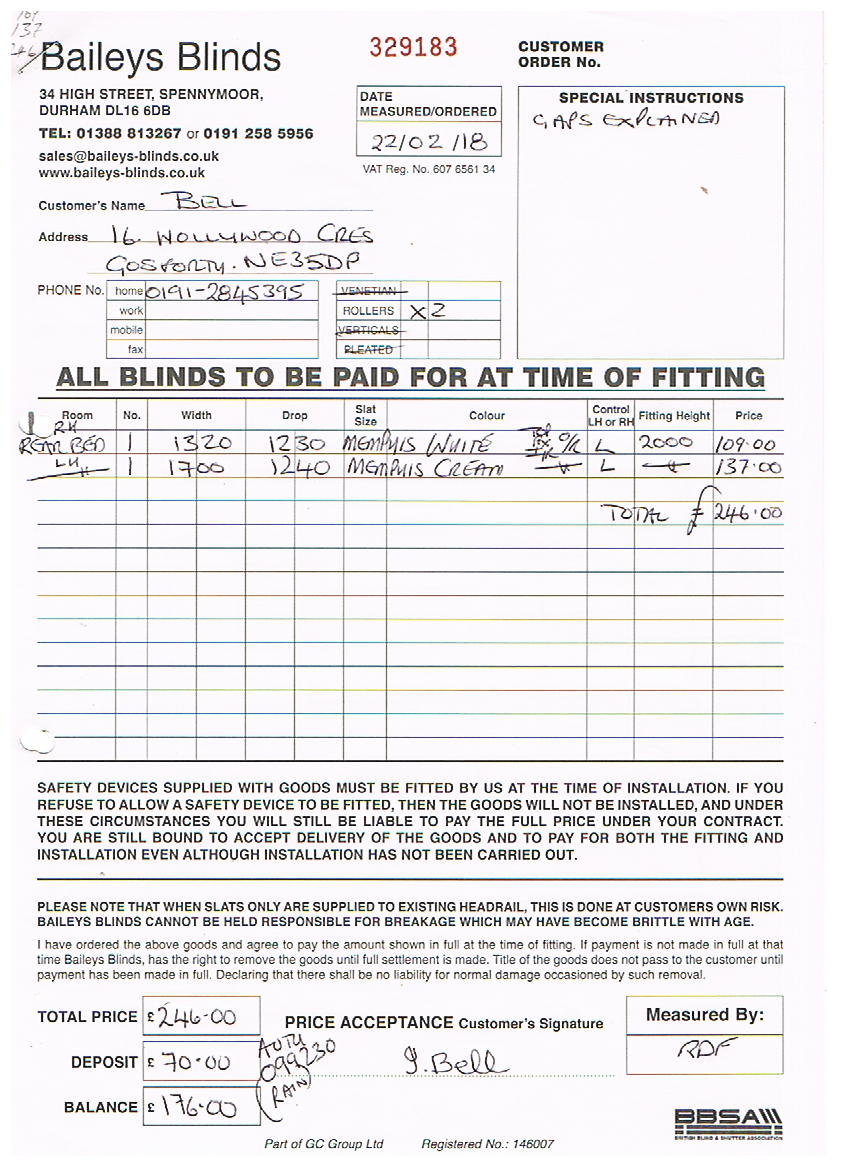 137
246
Baileys Blinds
329183
CUSTOMER
ORDER No.
34 HIGH STREET, SPENNYMOOR,
DURHAM DL16 6DB
TEL: 01388 813267 or 0191 258 5956
sales@baileys-blinds.co.uk
www.baileys-blinds.co.uk
DATE
MEASURED/ORDERED
22/02/18
VAT Reg. No. 607 6561 34
SPECIAL INSTRUCTIONS
GAPS EXPLAINED
Customer's Name BELL
Address 16. WOLLYWOOD CRES
GOSFORTH. NE35DP
PHONE No. home 0191-2845395
work
mobile
fax
VENETIAN
ROLLERS X2
VERTICALS
PLEATED
ALL BLINDS TO BE PAID FOR AT TIME OF FITTING
Room No. Width Drop Slat Size Colour Control LH or RH Fitting Height Price
RH
REAR BED 1 1320 1230 MEMPHIS WHITE O/R L 2000 109.00
LH 1 1700 1240 MEMPHIS CREAM L 137.00
TOTAL £246.00
SAFETY DEVICES SUPPLIED WITH GOODS MUST BE FITTED BY US AT THE TIME OF INSTALLATION. IF YOU
REFUSE TO ALLOW A SAFETY DEVICE TO BE FITTED, THEN THE GOODS WILL NOT BE INSTALLED, AND UNDER
THESE CIRCUMSTANCES YOU WILL STILL BE LIABLE TO PAY THE FULL PRICE UNDER YOUR CONTRACT.
YOU ARE STILL BOUND TO ACCEPT DELIVERY OF THE GOODS AND TO PAY FOR BOTH THE FITTING AND
INSTALLATION EVEN ALTHOUGH INSTALLATION HAS NOT BEEN CARRIED OUT.
PLEASE NOTE THAT WHEN SLATS ONLY ARE SUPPLIED TO EXISTING HEADRAIL, THIS IS DONE AT CUSTOMERS OWN RISK.
BAILEYS BLINDS CANNOT BE HELD RESPONSIBLE FOR BREAKAGE WHICH MAY HAVE BECOME BRITTLE WITH AGE.
I have ordered the above goods and agree to pay the amount shown in full at the time of fitting. If payment is not made in full at that
time Baileys Blinds, has the right to remove the goods until full settlement is made. Title of the goods does not pass to the customer until
payment has been made in full. Declaring that there shall be no liability for normal damage occasioned by such removal.
TOTAL PRICE £246.00
PRICE ACCEPTANCE Customer's Signature
Measured By:
RDF
DEPOSIT £70.00
AUTH
099230
(RAIN)
I.Bell
BALANCE £176.00
BBSA
BRITISH BLIND & SHUTTER ASSOCIATION
Part of GC Group Ltd Registered No.: 146007